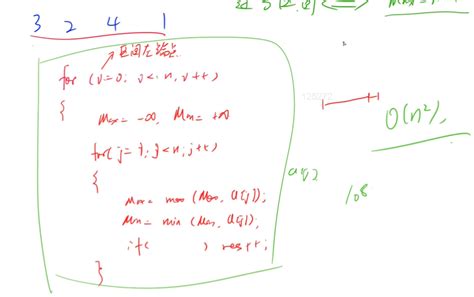 3 2 4 1
区间左端点
for (i=0; i<n, i++)
{
Max = -∞, Min = +∞
for(j=i; j<n; j++)
{
Max = max (Max, a[j]);
Min = min (Min, a[j]);
if( ) res++;
}
O(n²),
10⁸